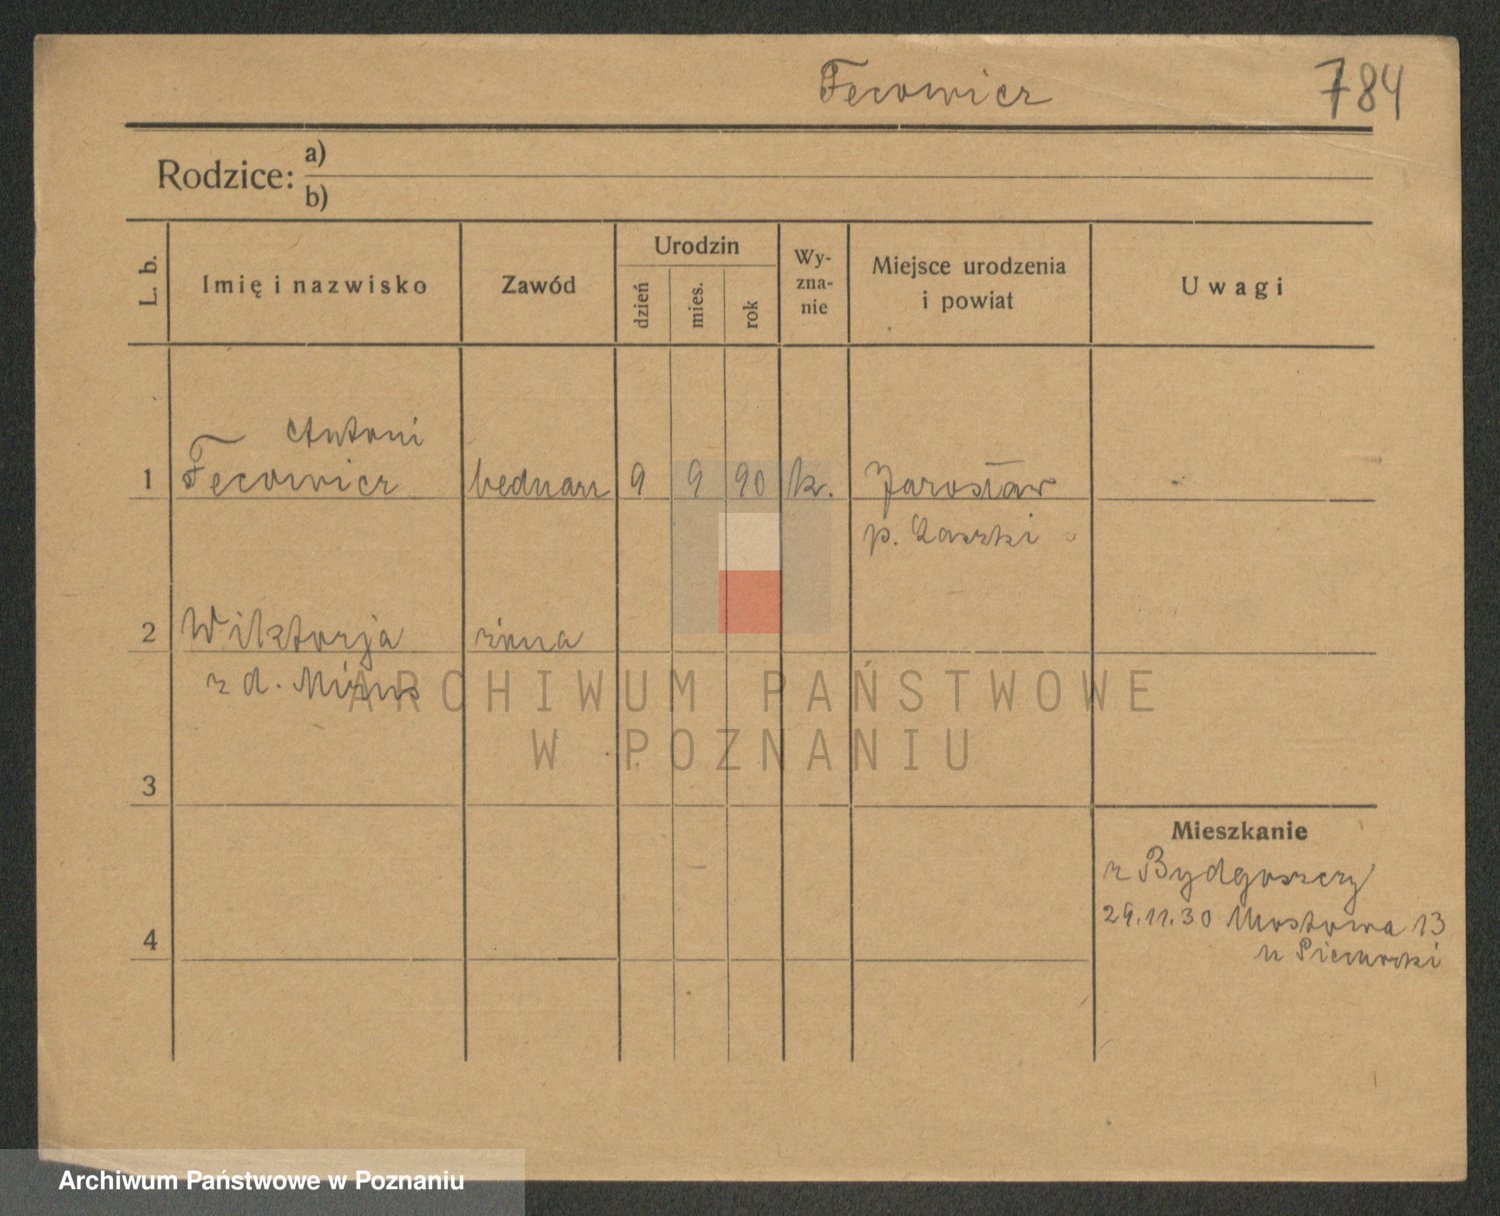 Fecowicz 784
Rodzice: a)
b)
L. b. Imię i nazwisko Zawód Urodzin dzień mies. rok Wyznanie Miejsce urodzenia i powiat Uwagi
Antoni
1 Fecowicz bednarz 9 9 90 k. Jarosław
p. Laszki
2 Wiktorja żona
z d.
3
4
Mieszkanie
z Bydgoszczy
29.11.30 Mostowa 13
u
ARCHIWUM PAŃSTWOWE
W POZNANIU
Archiwum Państwowe w Poznaniu